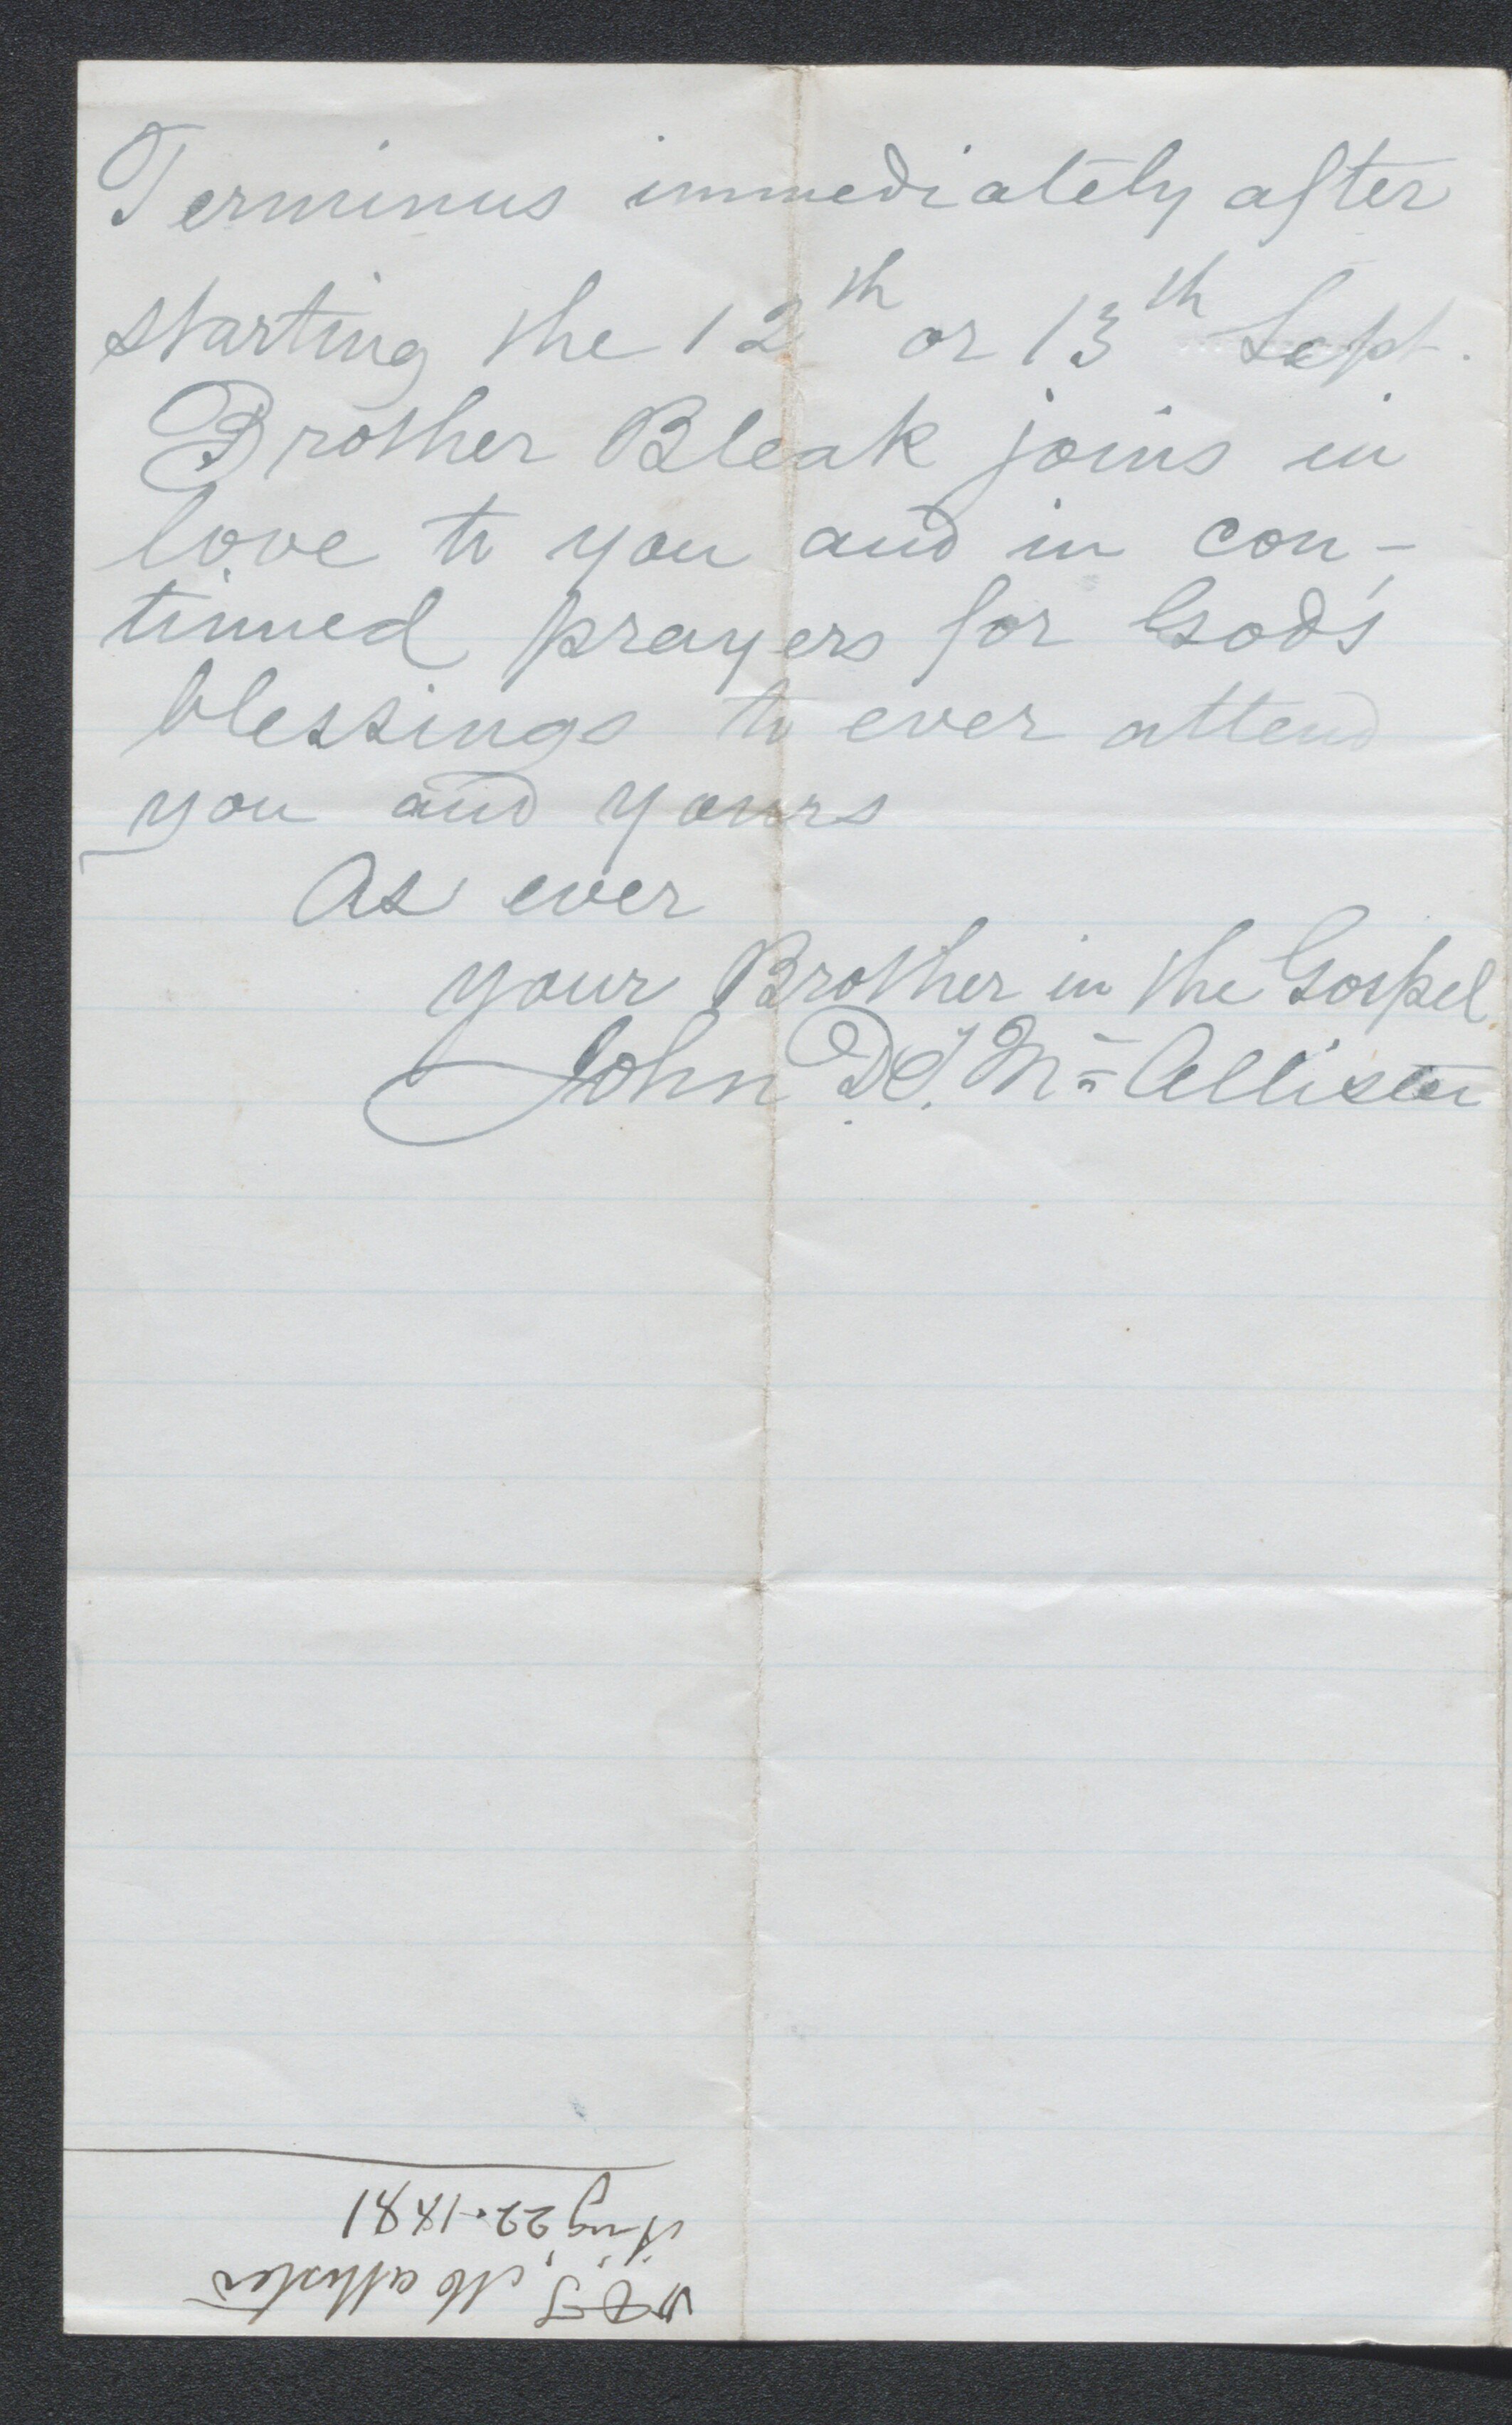 Terminus immediately after
starting the 12th or 13th Sept.
Brother Bleak joins in
love to you and in con-
tinued prayers for God's
blessings to ever attend
you and yours
As ever
your Brother in the Gospel
John D. T. McAllister
D. T. McAllister
Aug 22. 1881